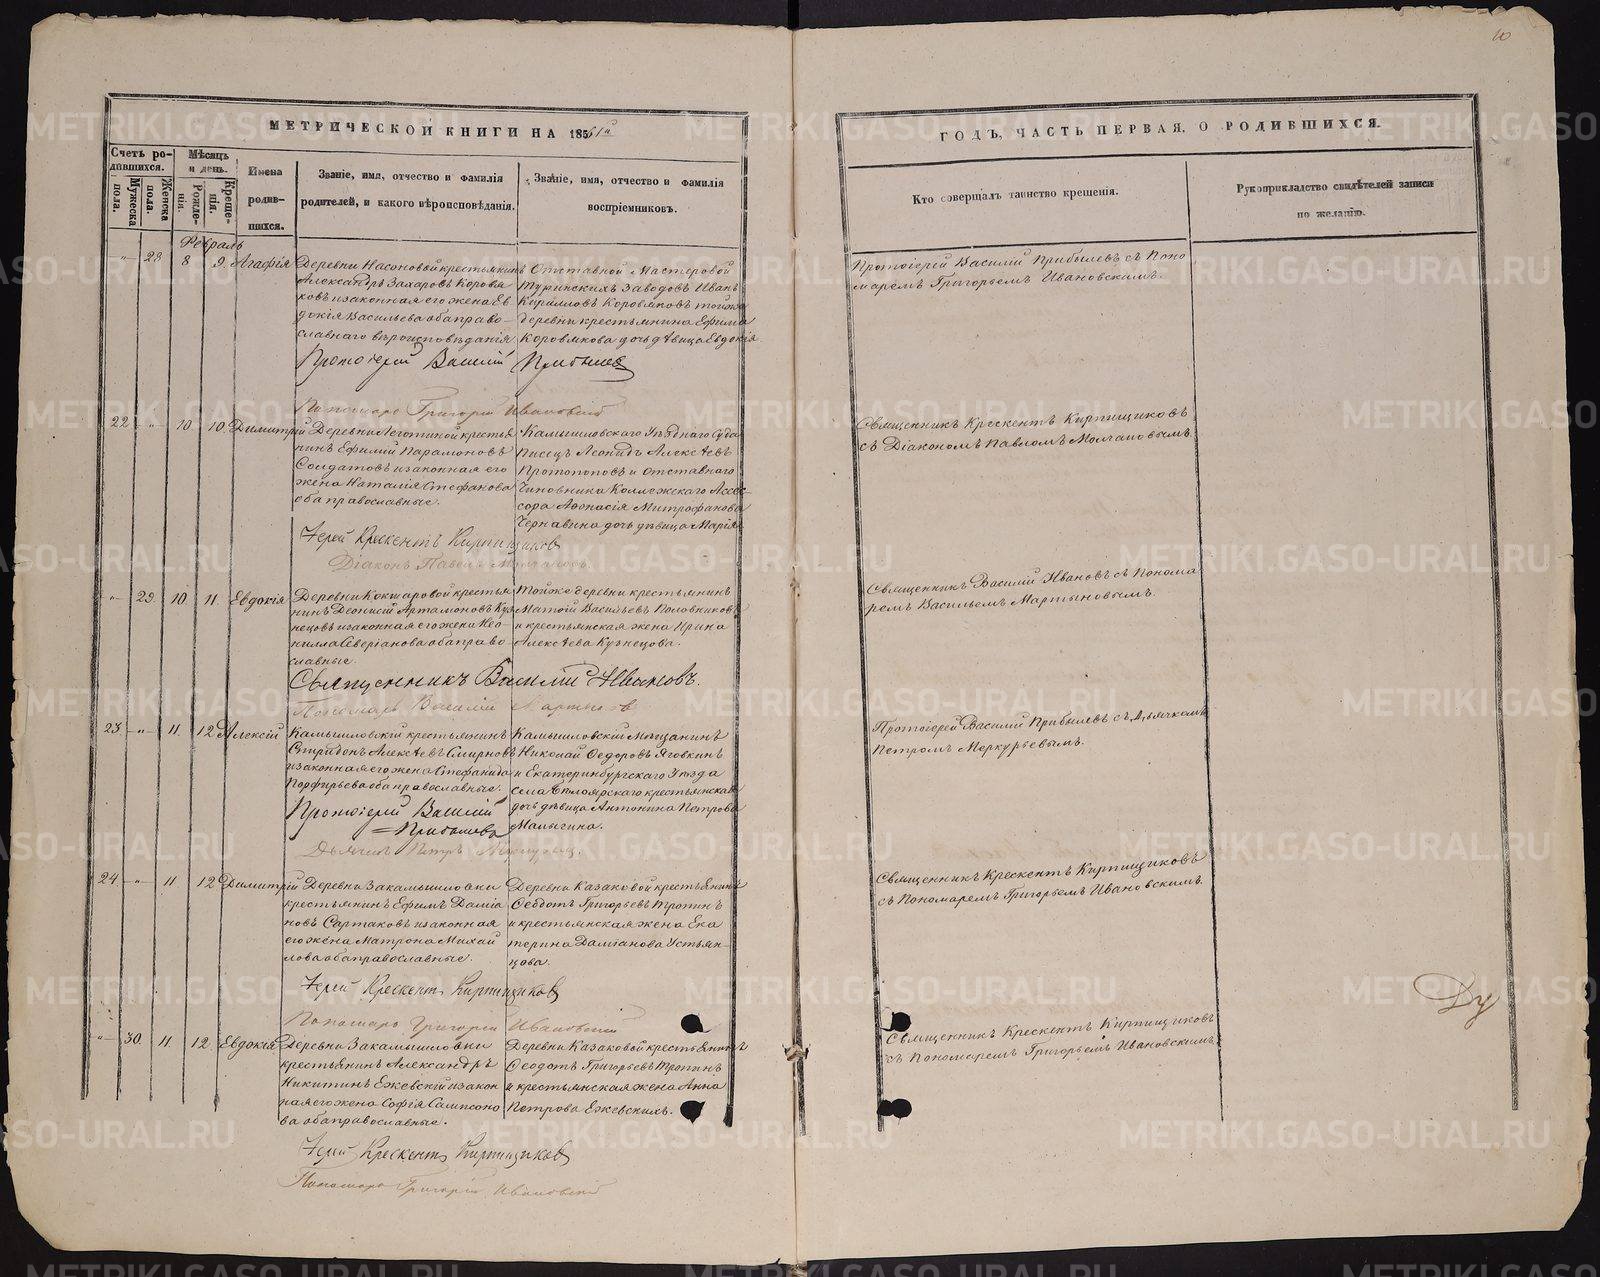 10
МЕТРИЧЕСКОЙ КНИГИ НА 1861й
ГОДЪ, ЧАСТЬ ПЕРВАЯ, О РОДИВШИХСЯ.
Счетъ родившихся.
Мужеска пола.
Женска пола.
Мѣсяцъ и день.
Рожденія.
Крещенія.
Имена родившихся.
Званіе, имя, отчество и фамилія родителей, и какого вѣроисповѣданія.
Званіе, имя, отчество и фамилія воспріемниковъ.
Кто совершалъ таинство крещенія.
Рукоприкладство свидѣтелей записи по желанію.
Февраль
-"- 28 8 9. Агафія
Деревни Насоновой крестьянинъ
Александръ Захаровъ Коровя
ковъ и законная его жена Ев
докія Васильева оба право-
славнаго вѣроисповѣданія
Отставной Мастеровой
Туринскихъ Заводовъ Иванъ
Кирилловъ Коровяковъ тойже
деревни крестьянина Ефима
Коровякова дочь дѣвица Евдокія
Протоіерей Василій Прибылевъ съ Поно
маремъ Григорьемъ Ивановскимъ.
Протоіерей Василій Прибылевъ
Пономарь Григорій Ивановскій
22 -"- 10 10 Димитрій
Деревни Леготиной крестья
нинъ Ефимій Парамоновъ
Солдатовъ и законная его
жена Наталія Стефанова
оба православные.
Камышловскаго Уѣзднаго Суда
Писецъ Леонидъ Алексѣевъ
Протопоповъ и отставнаго
Чиновника Коллежскаго Асес-
сора Афонасія Митрофанова
Чернавина дочь дѣвица Марія
Священникъ Крескентъ Кирпищиковъ
съ Діакономъ Павломъ Молчановымъ.
Іерей Крескентъ Кирпищиковъ
Діаконъ Павелъ Молчановъ
-"- 29 10. 11. Евдокія
Деревни Кокшаровой крестьян
нинъ Деонисій Артамоновъ Куз
нецовъ и законная его жена Нео-
нилла Северіанова оба право-
славные.
Тойже деревни крестьянинъ
Матѳій Васильевъ Половниковъ
и крестьянская жена Ирина
Алексѣева Кузнецова.
Священникъ Василій Ивановъ съ Понома
ремъ Васильемъ Мартыновымъ.
Священникъ Василій Ивановъ.
Пономарь Василій Мартыновъ
23 -"- 11. 12 Алексій
Камышловскій крестьянинъ
Спиридонъ Алексѣевъ Смирновъ
и законная его жена Стефанида
Порфирьева оба православные.
Камышловскій Мѣщанинъ
Николай Ѳедоровъ Яговкинъ
и Екатеринбургскаго Уѣзда
села Бѣлоярскаго крестьянская
дочь дѣвица Антонина Петрова
Малыгина.
Протоіерей Василій Прибылевъ съ Дьячкомъ
Петромъ Меркурьевымъ.
Протоіерей Василій
Прибылевъ
Дьячекъ Петръ Меркурьевъ.
24 -"- 11 12 Димитрій
Деревни Закамышловки
крестьянинъ Ефимъ Даміа
новъ Сартаковъ и законная
его жена Матрона Михай
лова оба православные.
Деревни Казаковой крестьянинъ
Ѳеодотъ Григорьевъ Тропинъ
и крестьянская жена Ека
терина Даміанова Устьян-
цова.
Священникъ Крескентъ Кирпищиковъ
съ Пономаремъ Григорьемъ Ивановскимъ.
Іерей Крескентъ Кирпищиковъ
Пономарь Григорій Ивановскій
-"- 30. 11. 12. Евдокія
Деревни Закамышловки
крестьянинъ Александръ
Никитинъ Ежевскій и закон
ная его жена Софія Сампсоно
ва оба православные.
Деревни Казаковой крестьянинъ
Ѳеодотъ Григорьевъ Тропинъ
и крестьянская жена Анна
Петрова Ежевскихъ.
Священникъ Крескентъ Кирпищиковъ
съ Пономаремъ Григорьемъ Ивановскимъ.
Іерей Крескентъ Кирпищиковъ
Пономарь Григорій Ивановскій
METRIKI.GASO-URAL.RU